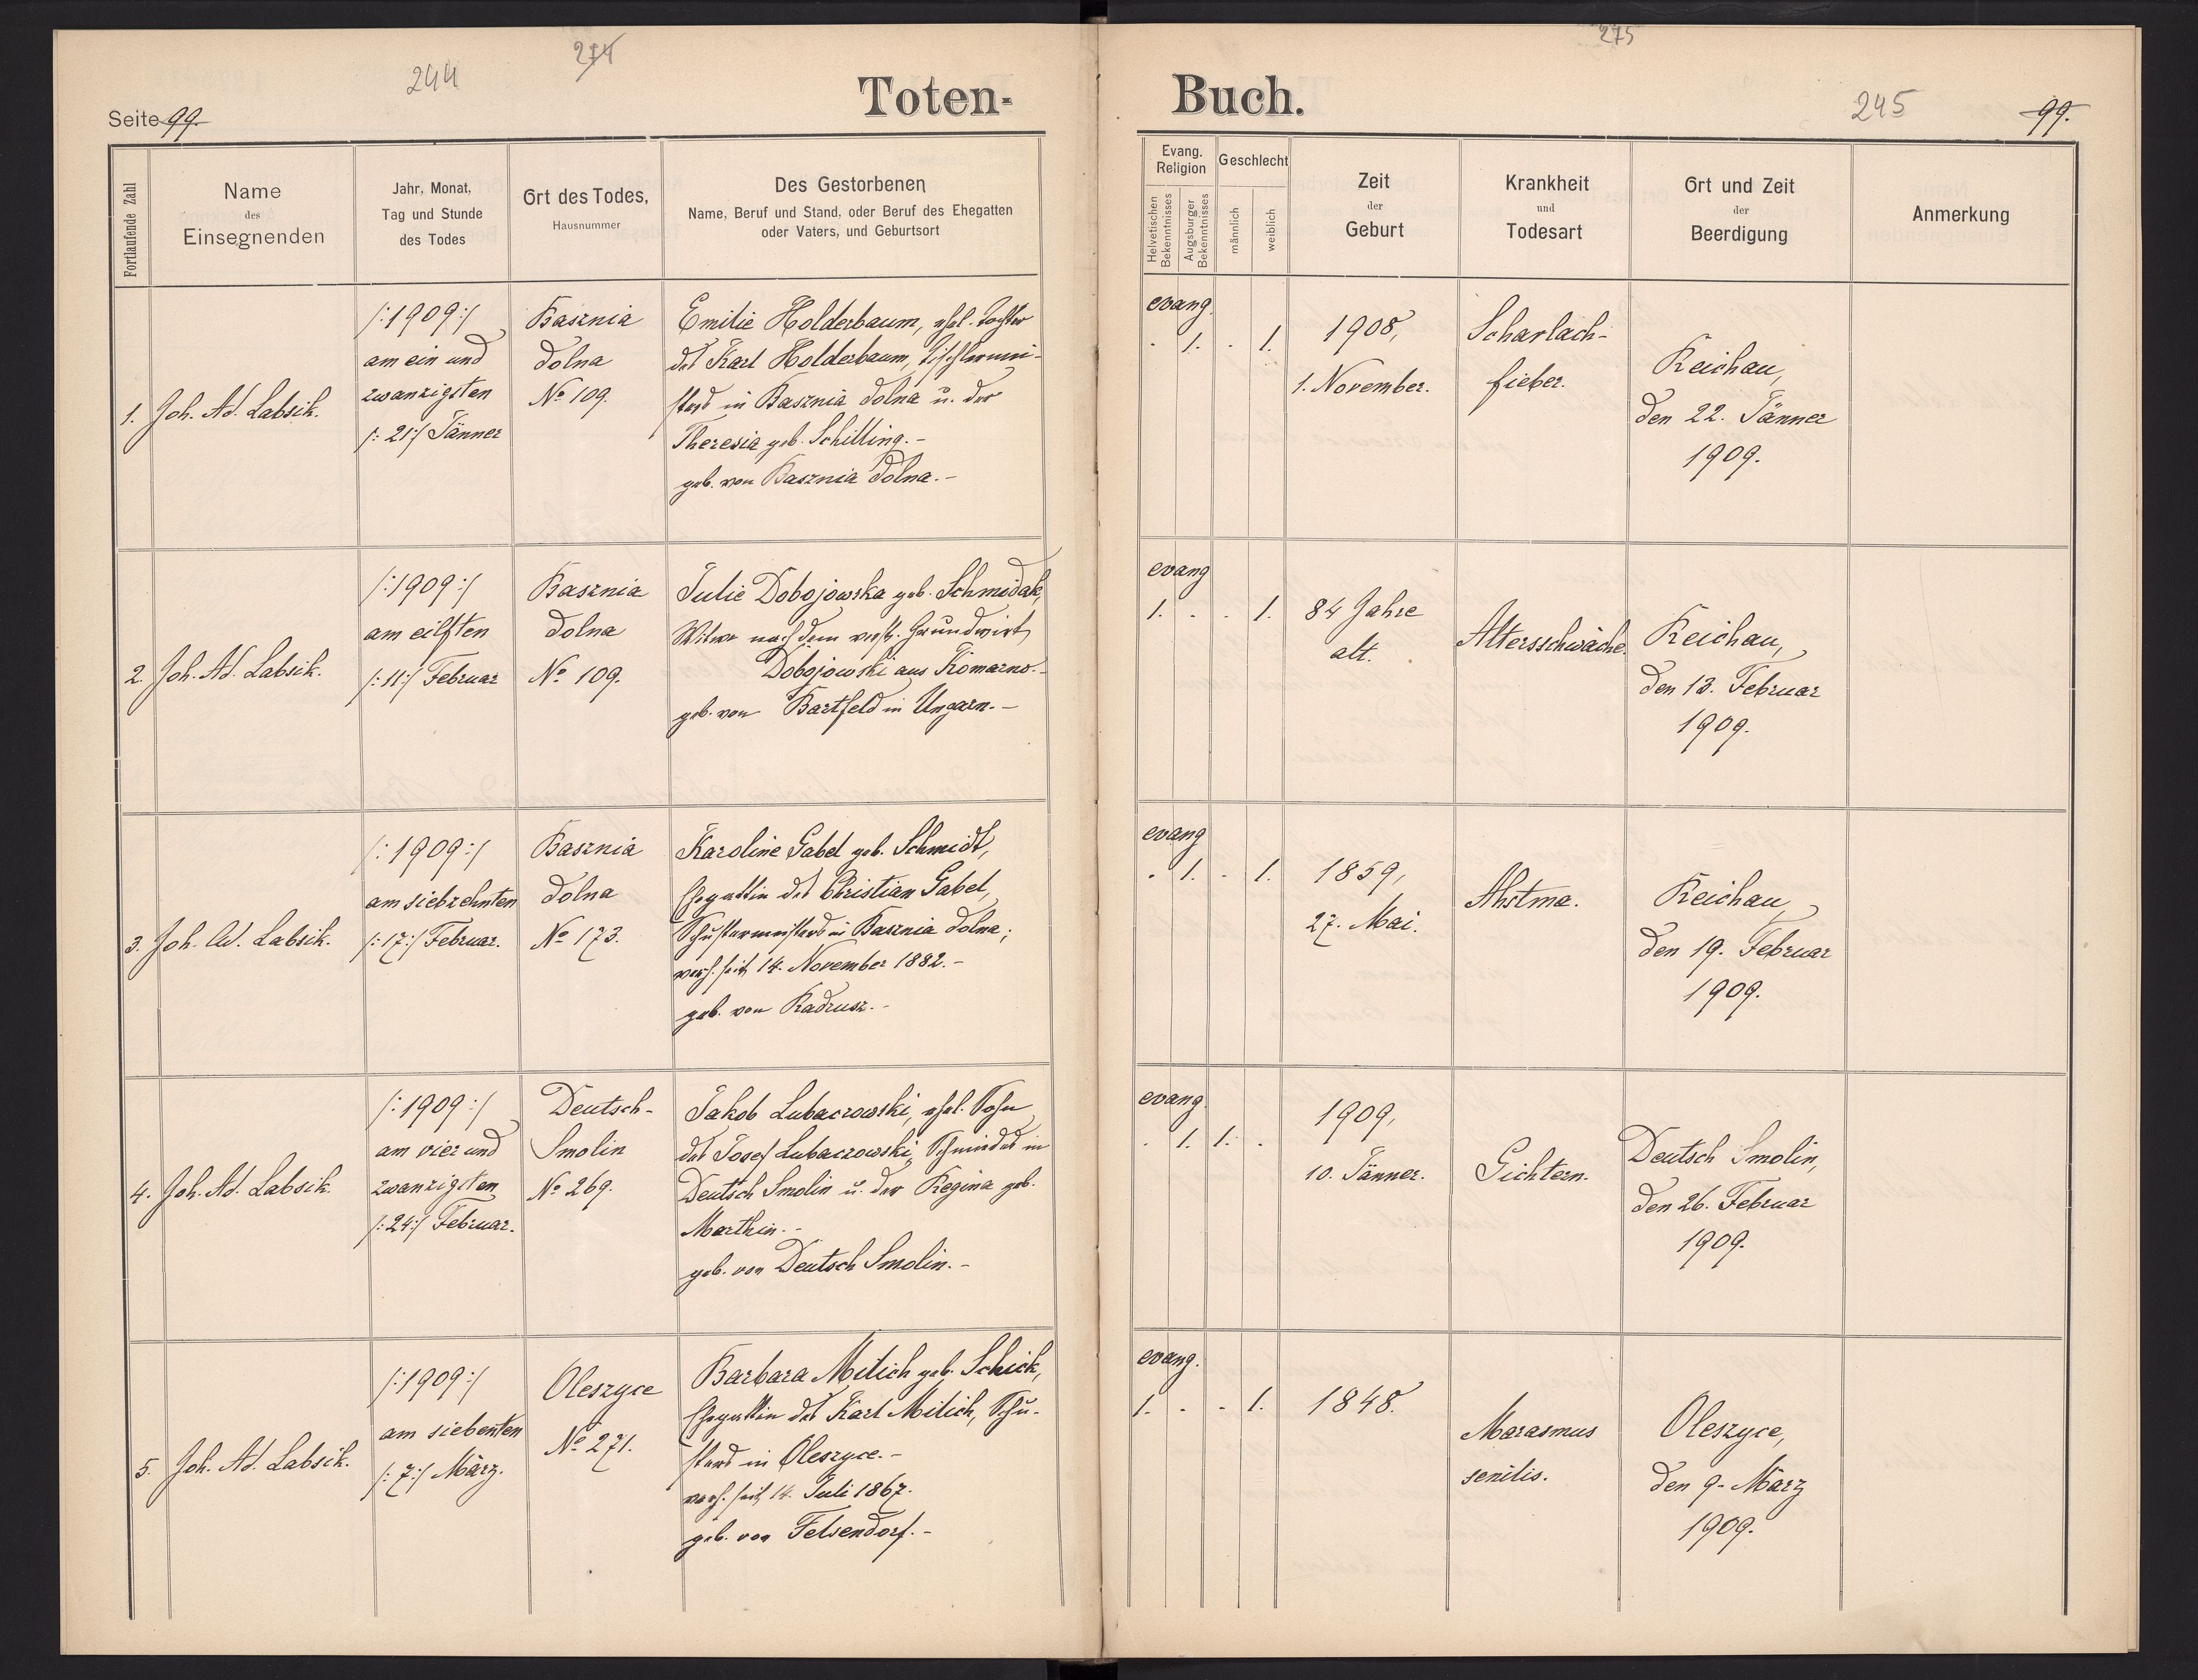 244
274
Toten-
Seite 99.
Fortlaufende Zahl
Name
des
Einsegnenden
Jahr, Monat,
Tag und Stunde
des Todes
Ort des Todes,
Hausnummer
Des Gestorbenen
Name, Beruf und Stand, oder Beruf des Ehegatten
oder Vaters, und Geburtsort
1.
Joh. Ad. Labsik.
/:1909:/
am ein und
zwanzigsten
/:21:/ Jänner
Basznia
dolna
No 109.
Emilie Holderbaum, ehel. Tochter
des Karl Holderbaum, Tischlermei-
sters in Basznia dolna u. der
Theresia geb. Schilling.-
geb. von Basznia dolna.-
2.
Joh. Ad. Labsik.
/:1909:/
am eilften
/:11:/ Februar
Basznia
dolna
No 109.
Julie Dobojowska geb. Schmidak,
Witwe nach dem verst. Grundwirt
Dobojowski aus Komarno.-
geb. von Bartfeld in Ungarn.-
3.
Joh. Ad. Labsik.
/:1909:/
am siebzehnten
/:17:/ Februar.
Basznia
dolna
No 173.
Karoline Gabel geb. Schmidt,
Ehegattin des Christian Gabel,
Schustermeisters in Basznia dolna;
verh. seit 14. November 1882.-
geb. von Radrusz.-
4.
Joh. Ad. Labsik.
/:1909:/
am vier und
zwanzigsten
/:24:/ Februar.
Deutsch-
Smolin
No 269.
Jakob Lubaczowski, ehel. Sohn
des Josef Lubaczowski, Schmiedes in
Deutsch Smolin u. der Regina geb.
Marthin.-
geb. von Deutsch Smolin.-
5.
Joh. Ad. Labsik.
/:1909:/
am siebenten
/:7:/ März.
Oleszyce
No 271.
Barbara Milich geb. Schick,
Ehegattin des Karl Milich, Schu-
sters in Oleszyce.-
verh. seit 14. Juli 1867.
geb. von Felsendorf.-
275
Buch.
245
99.
Evang.
Religion
Helvetischen
Bekenntnisses
Augsburger
Bekenntnisses
Geschlecht
männlich
weiblich
Zeit
der
Geburt
Krankheit
und
Todesart
Ort und Zeit
der
Beerdigung
Anmerkung
evang.
. 1. . 1.
1908,
1. November.
Scharlach-
fieber.
Reichau,
den 22. Jänner
1909.
evang
1. . . 1.
84 Jahre
alt.
Altersschwäche.
Reichau,
den 13. Februar
1909.
evang
. 1. . 1.
1859,
27. Mai.
Ahstma.
Reichau,
den 19. Februar
1909.
evang.
. 1. 1. .
1909,
10. Jänner.
Gichtern.
Deutsch Smolin,
den 26. Februar
1909.
evang.
1. . . 1.
1848.
Marasmus
senilis.
Oleszyce,
den 9. März
1909.